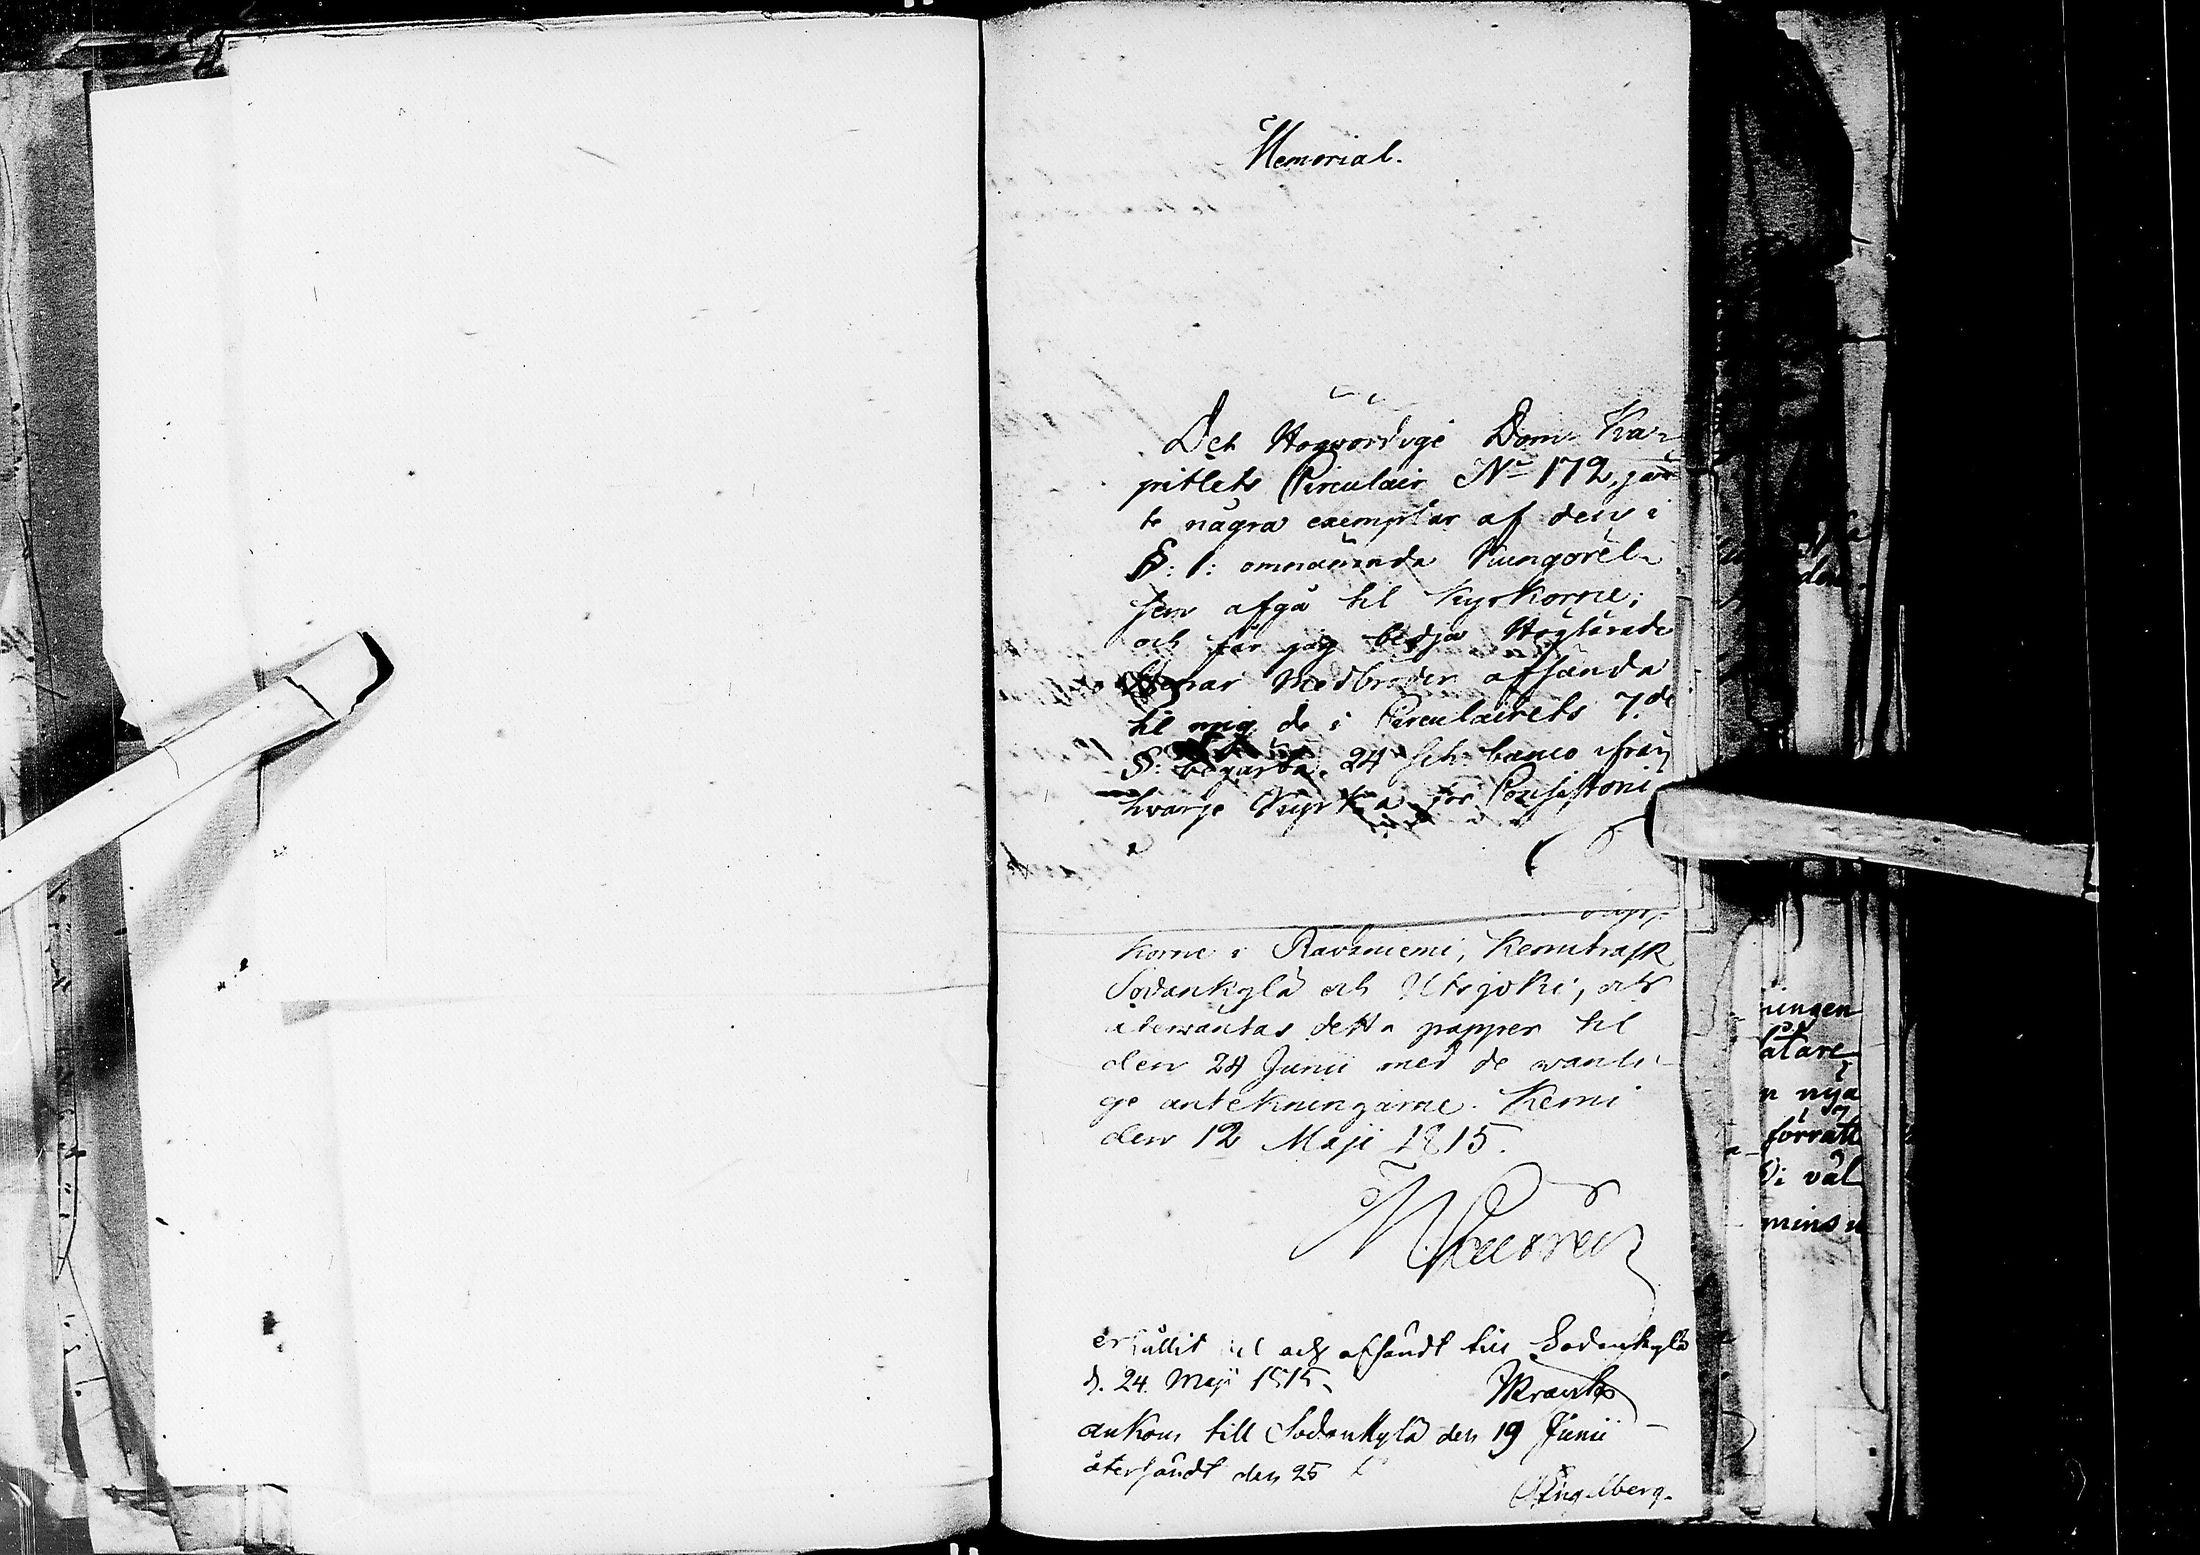 Memorial.
Det Högvördige Dom Ka-
pitlets Circulair No 172, jäm
te några exemplar af den i
§: 1: omnämnda Kungörel-
sen afgå til Kyrkorne;
och får jag bedja Höglärade
Herrar Medbröder afsända
til mig de i Circulairets 7.de
§: begärta 24 sch: banco ifrån
hvarje Kyrka för Consistorii
korne i Ravaniemi, Kemiträsk
Sodankylä och Utsjoki, och
återwäntas detta papper til
den 24 Junii med de wanli-
ge antekningarne. Kemi
den 12 Maji 1815.
erhållit och afsändt till Sodankylä
d. 24. Maji 1815.
ankom till Sodankylä den 19 Junii
återsändt den 25
Engelberg.
ningen
låtare
n nya
förrätt
Di väl